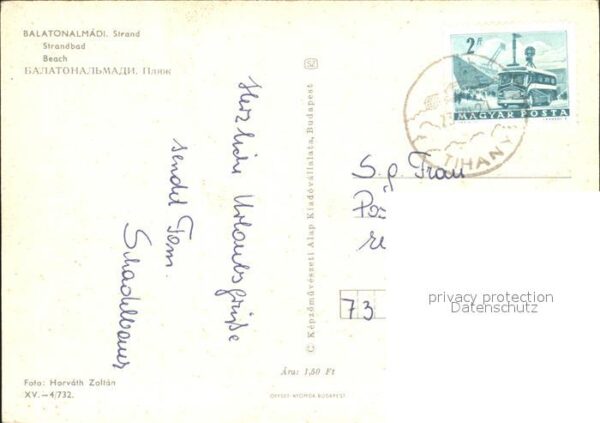 BALATONALMÁDI. Strand
Strandbad
Beach
БАЛАТОНАЛЬМАДИ. Пляж
Herzliche Urlaubsgrüße
sendet Fam.
Schadelbauer
Foto: Horváth Zoltán
XV.—4/732.
SZ
C Képzőművészeti Alap Kiadóvállalata, Budapest
Ára: 1,50 Ft
OFFSET-NYOMDA BUDAPEST
2 Ft
MAGYAR POSTA
TIHANY
S. g. Frau
73
privacy protection
Datenschutz